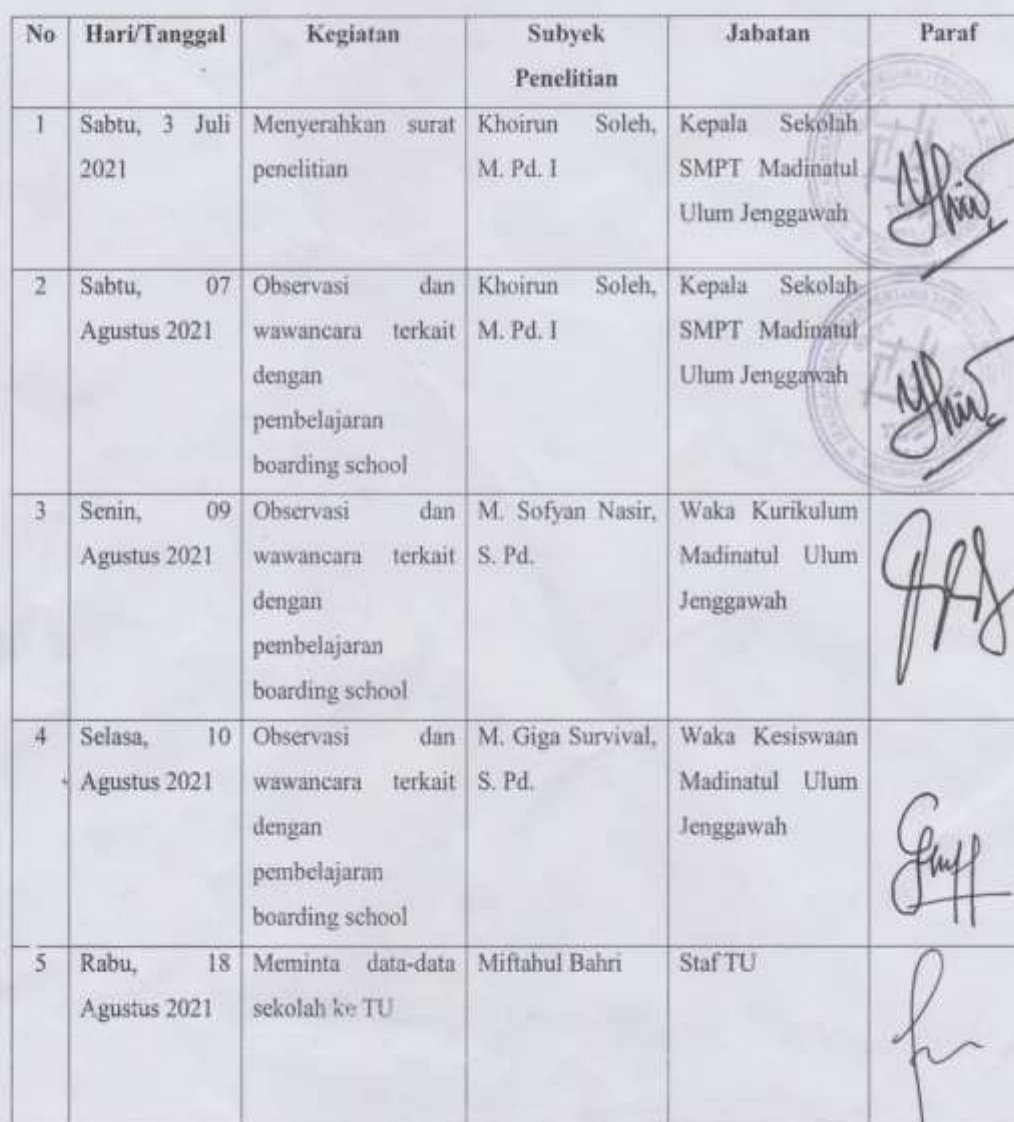 No Hari/Tanggal Kegiatan Subyek Penelitian Jabatan Paraf
1 Sabtu, 3 Juli 2021 Menyerahkan surat penelitian Khoirun Soleh, M. Pd. I Kepala Sekolah SMPT Madinatul Ulum Jenggawah
2 Sabtu, 07 Agustus 2021 Observasi dan wawancara terkait dengan pembelajaran boarding school Khoirun Soleh, M. Pd. I Kepala Sekolah SMPT Madinatul Ulum Jenggawah
3 Senin, 09 Agustus 2021 Observasi dan wawancara terkait dengan pembelajaran boarding school M. Sofyan Nasir, S. Pd. Waka Kurikulum Madinatul Ulum Jenggawah
4 Selasa, 10 Agustus 2021 Observasi dan wawancara terkait dengan pembelajaran boarding school M. Giga Survival, S. Pd. Waka Kesiswaan Madinatul Ulum Jenggawah
5 Rabu, 18 Agustus 2021 Meminta data-data sekolah ke TU Miftahul Bahri Staf TU